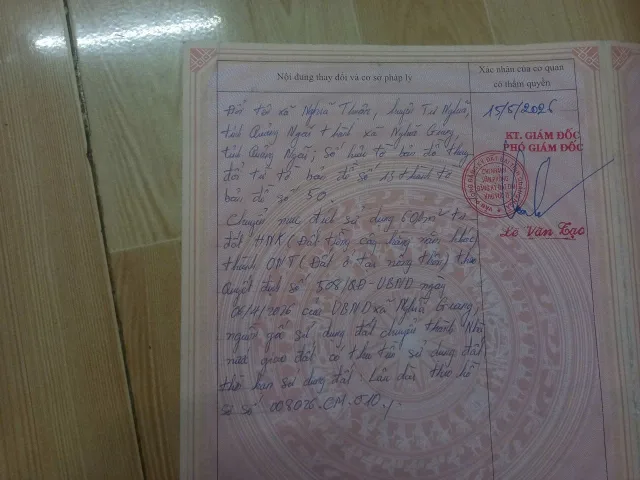 Nội dung thay đổi và cơ sở pháp lý
Xác nhận của cơ quan
có thẩm quyền
Đổi tên xã Nghĩa Thuận, huyện Tư Nghĩa,
tỉnh Quảng Ngãi thành xã Nghĩa Giang,
tỉnh Quảng Ngãi; số hiệu tờ bản đồ thay
đổi từ tờ bản đồ số 15 thành tờ
bản đồ số 50.
Chuyển mục đích sử dụng 60m² từ
đất HNK (Đất trồng cây hàng năm khác)
thành ONT (Đất ở tại nông thôn) theo
Quyết định số 508/QĐ-UBND ngày
06/4/2026 của UBND xã Nghĩa Giang,
nguồn gốc sử dụng đất chuyển thành Nhà
nước giao đất có thu tiền sử dụng đất
thời hạn sử dụng đất: Lâu dài theo hồ
sơ số 008026.CM.010./.
15/5/2026
KT. GIÁM ĐỐC
PHÓ GIÁM ĐỐC
CHI NHÁNH
VĂN PHÒNG
ĐĂNG KÝ ĐẤT ĐAI
Lê Văn Tạo